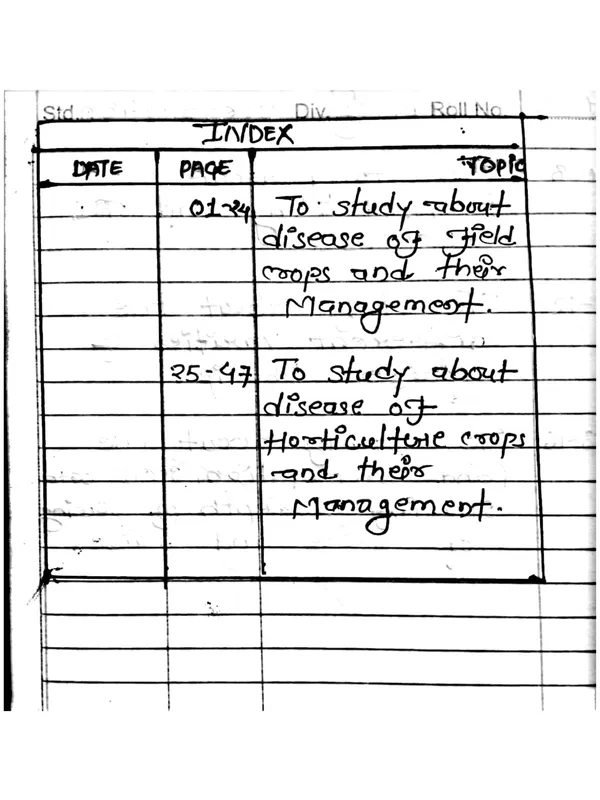 Std. Div. Roll No.
INDEX
DATE PAGE Topic
01-24 To study about
disease of Field
crops and their
Management.
25-47 To study about
disease of
Horticulture crops
and their
Management.